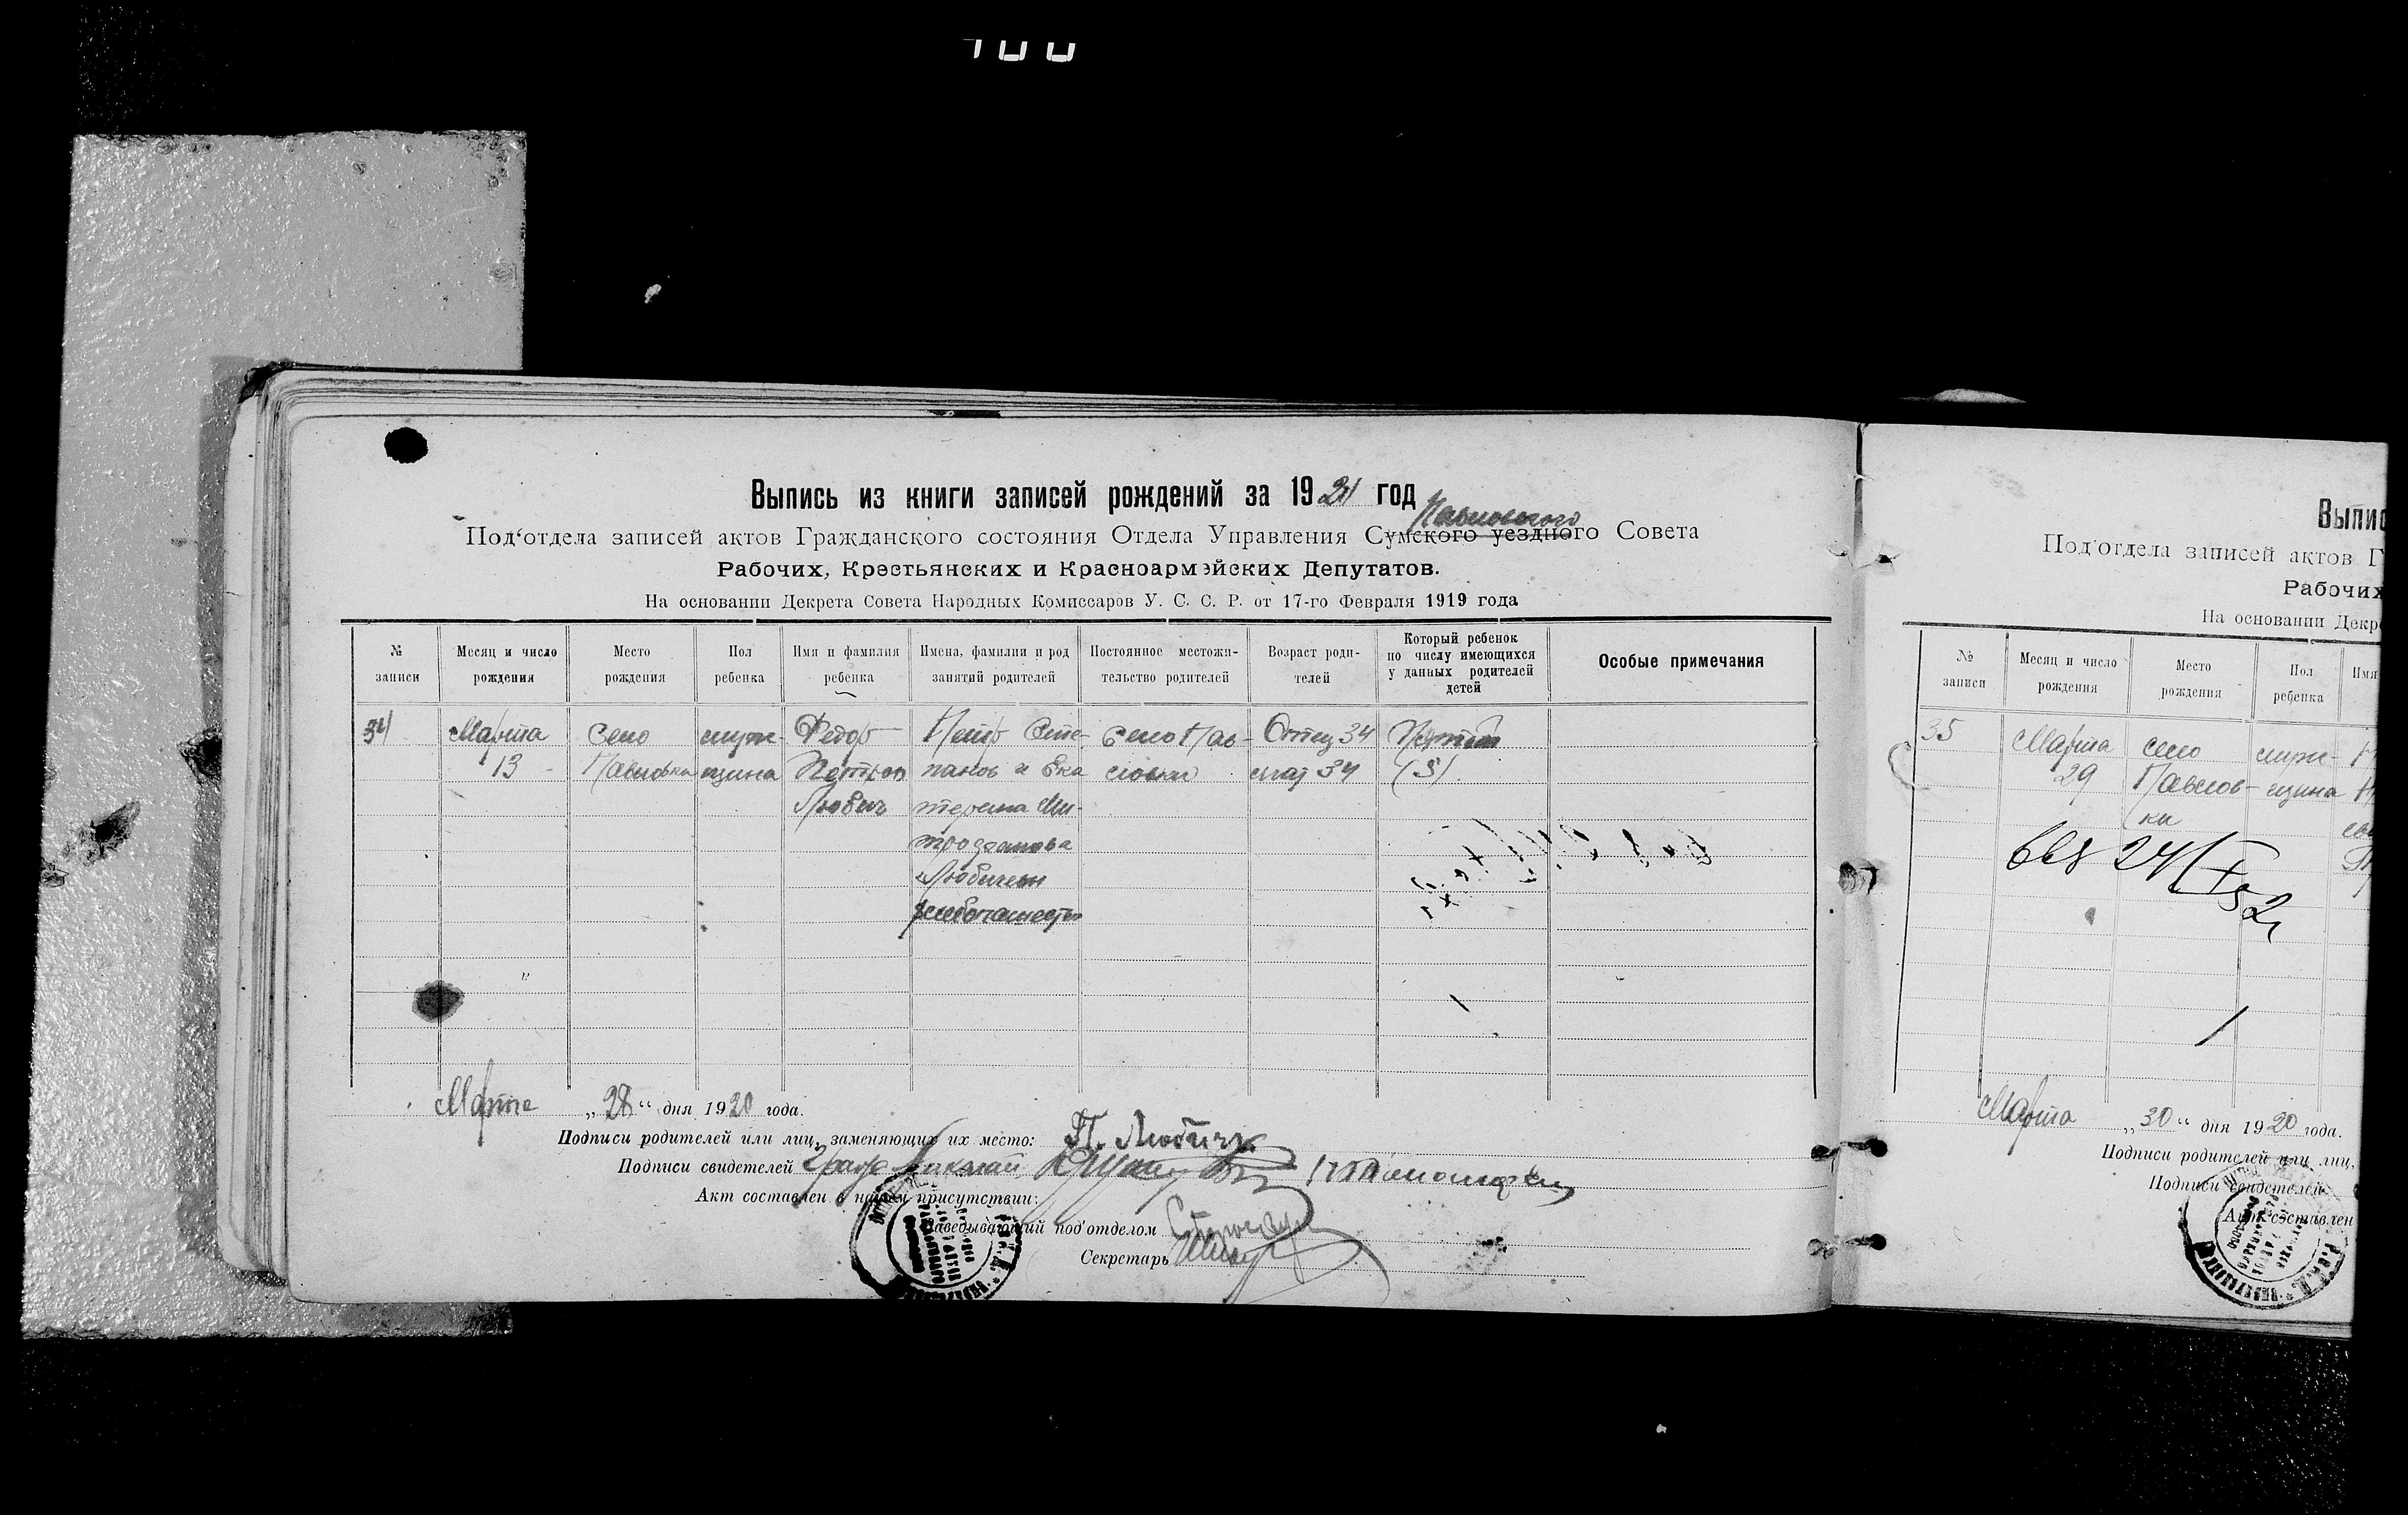 Выпись из книги записей рождений за 1921 год
Павловского
Под'отдела записей актов Гражданского состояния Отдела Управления Сумского уездного Совета
Рабочих, Крестьянских и Красноармейских Депутатов.
На основании Декрета Совета Народных Комиссаров У. С. С. Р. от 17-го Февраля 1919 года
№ записи
Месяц и число рождения
Место рождения
Пол ребенка
Имя и фамилия ребенка
Имена, фамилии и род занятий родителей
Постоянное местожительство родителей
Возраст родителей
Который ребенок по числу имеющихся у данных родителей детей
Особые примечания
34 Марта Село мущ- Федор Петр Сте- Село Пав- Отец 34
13 Павловка щина Петров панов и Ека ловки мат 34 (5)
Любич терина Ми-
трофанова
Любичева
хлебопашество
Марта „28“ дня 1920 года.
Подписи родителей или лиц, заменяющих их место: П. Любич
Подписи свидетелей Николай
Акт составлен в нашем присутствии:
Заведывающий под'отделом
Секретарь
Выпис
Под'отдела записей актов Г
Рабочих
На основании Декр
№ записи
Месяц и число рождения
Место рождения
Пол ребенка
Имя
35 Марта село мущ-
29 Павлов- щина
ки
Марта „30“ дня 1920 года.
Подписи родителей или лиц,
Подписи свидетелей
Акт составлен